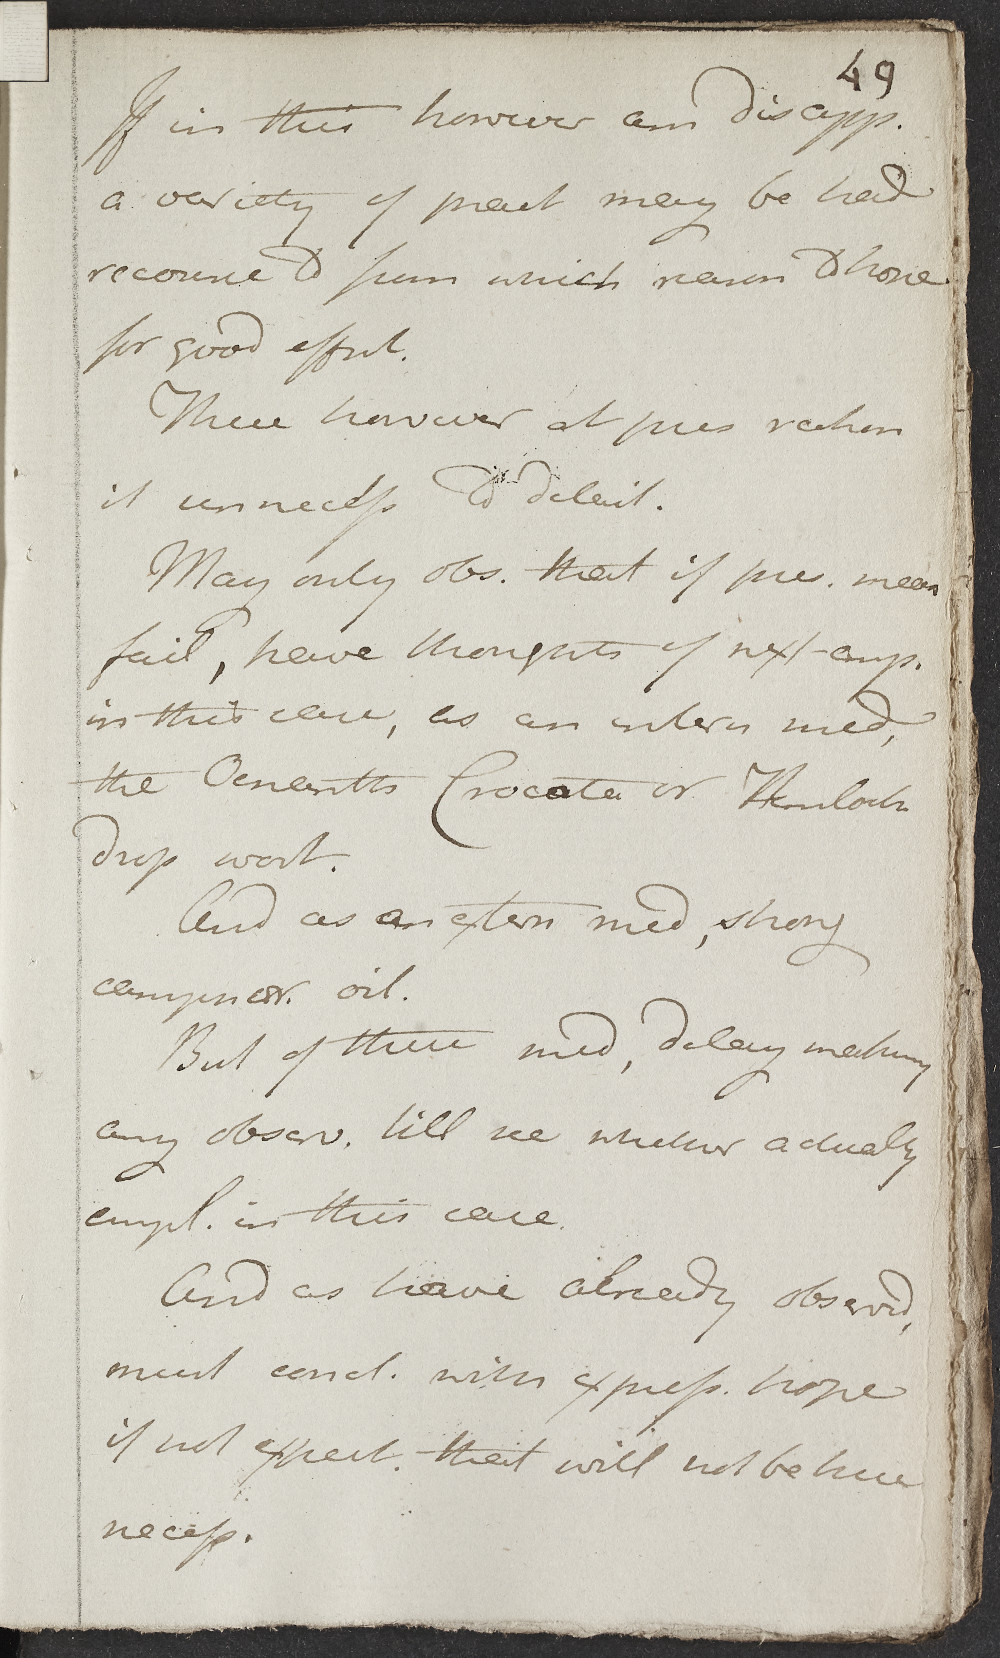 49
If in this however am disapp.
a variety of pract may be had
recourse to from which reason to hope
for good effect.
These however at pres reckon
it unnecess to detail.
May only obs. that if pres. mean
fail, have thoughts of next emp.
in this case, as an intern med,
the Oenanthe Crocata or Hemlock
drop wort.
And as an extern med, strong
camphor. oil.
But of these med, delay making
any observ. till see whether actually
empl. in this case.
And as have already observd,
must concl. with express. hope
if not expect. that will not be here
necess.